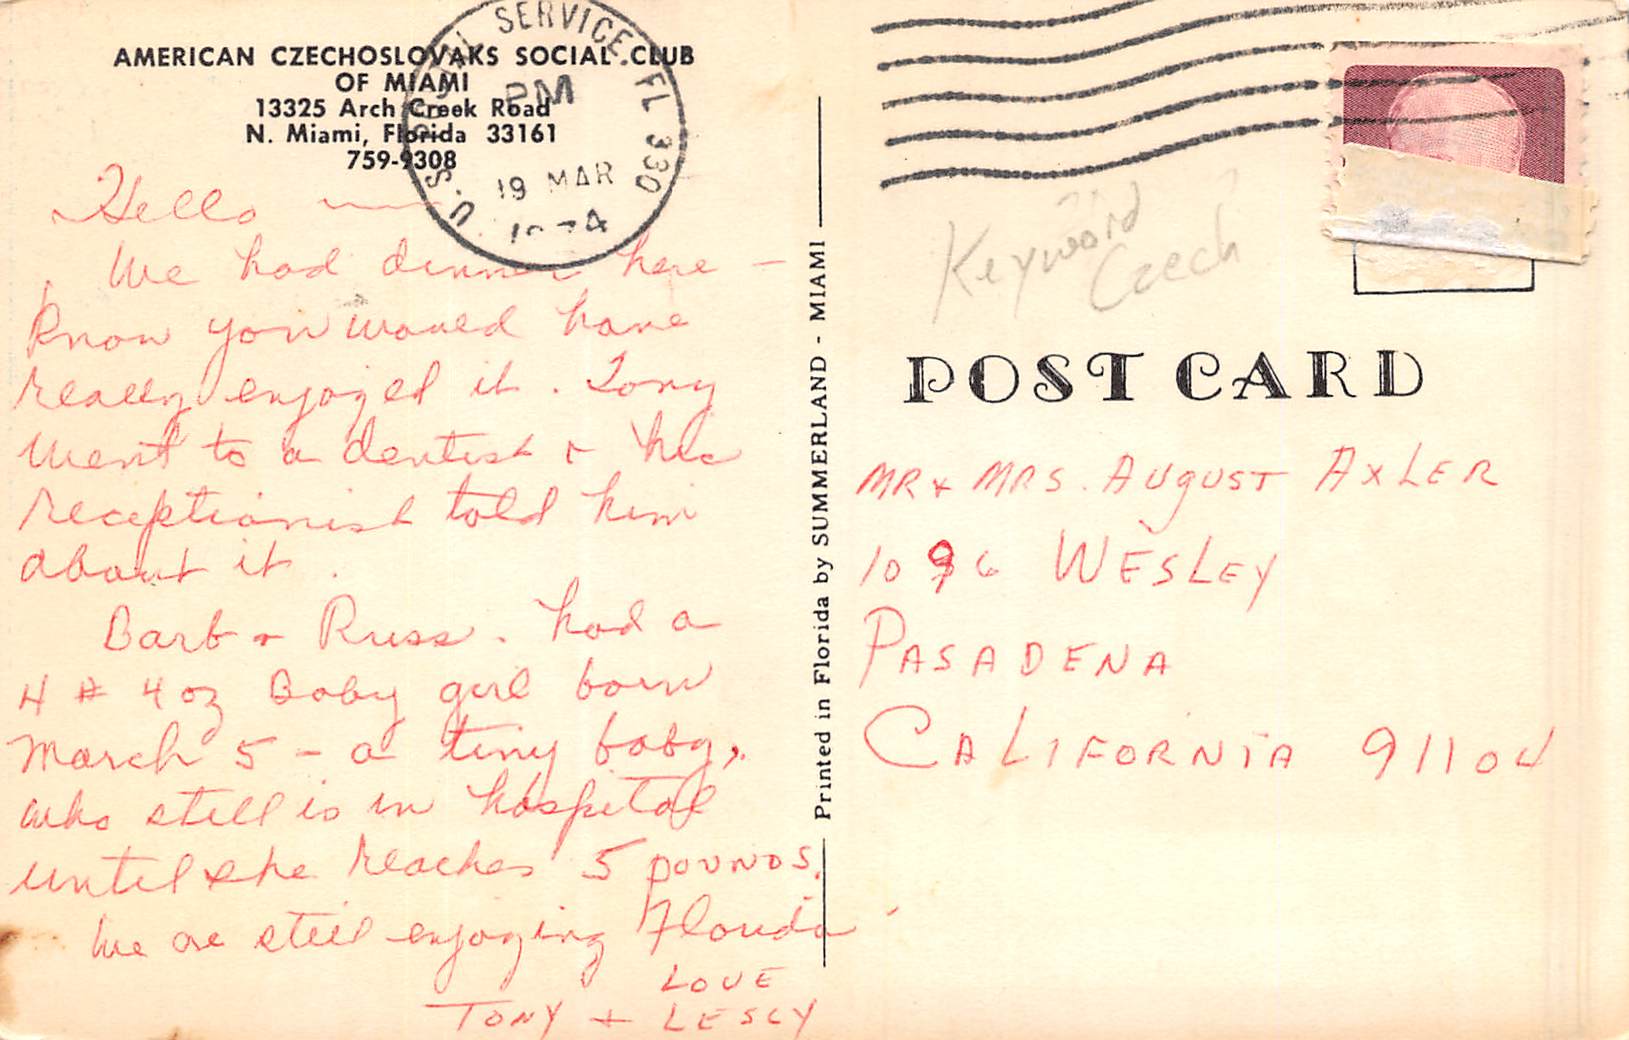 AMERICAN CZECHOSLOVAKS SOCIAL CLUB
OF MIAMI
13325 Arch Creek Road
N. Miami, Florida 33161
759-9308
U.S. POSTAL SERVICE FL 330
PM
19 MAR
1974
Hello
We had dinner here —
know you would have
really enjoyed it. Tony
went to a dentist & his
receptionist told him
about it.
Barb & Russ. had a
4 # 4 oz Baby girl born
March 5 - a tiny baby,
who still is in hospital
until she reaches 5 POUNDS.
We are still enjoying Florida
LOVE
TONY + LESCY
Printed in Florida by SUMMERLAND - MIAMI
Keyword
Czech
POST CARD
MR & MRS. AUGUST AXLER
1096 WESLEY
PASADENA
CALIFORNIA 91104